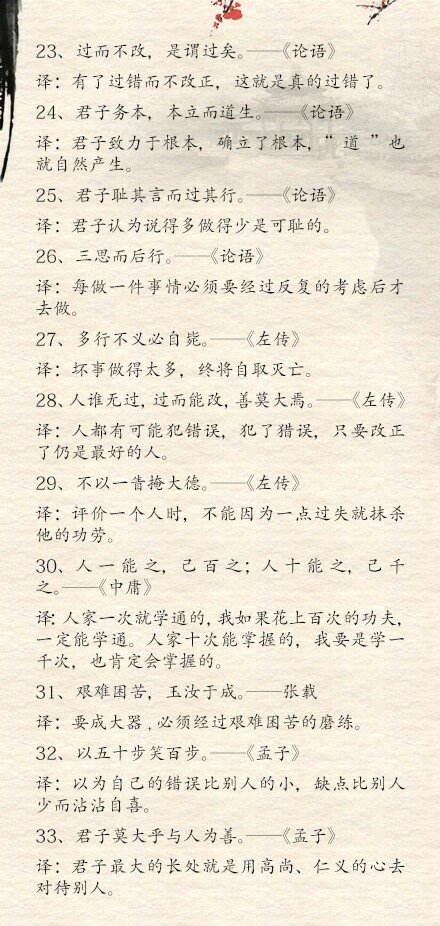 23、过而不改，是谓过矣。——《论语》
译：有了过错而不改正，这就是真的过错了。
24、君子务本，本立而道生。——《论语》
译：君子致力于根本，确立了根本，“ 道 ”也
就自然产生。
25、君子耻其言而过其行。——《论语》
译：君子认为说得多做得少是可耻的。
26、三思而后行。——《论语》
译：每做一件事情必须要经过反复的考虑后才
去做。
27、多行不义必自毙。——《左传》
译：坏事做得太多，终将自取灭亡。
28、人谁无过，过而能改，善莫大焉。——《左传》
译：人都有可能犯错误，犯了猎误，只要改正
了仍是最好的人。
29、不以一眚掩大德。——《左传》
译：评价一个人时，不能因为一点过失就抹杀
他的功劳。
30、人一能之，己百之；人十能之，己千
之。——《中庸》
译：人家一次就学通的，我如果花上百次的功夫，
一定能学通。人家十次能掌握的，我要是学一
千次，也肯定会掌握的。
31、艰难困苦，玉汝于成。——张载
译：要成大器﹐必须经过艰难困苦的磨练。
32、以五十步笑百步。——《孟子》
译：以为自己的错误比别人的小，缺点比别人
少而沾沾自喜。
33、君子莫大乎与人为善。——《孟子》
译：君子最大的长处就是用高尚、仁义的心去
对待别人。